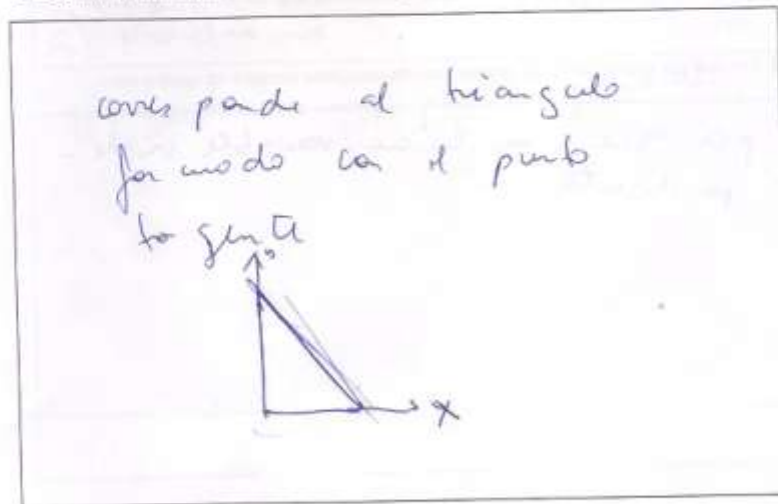 corresponde al triangulo
formado con el punto
tangente
x